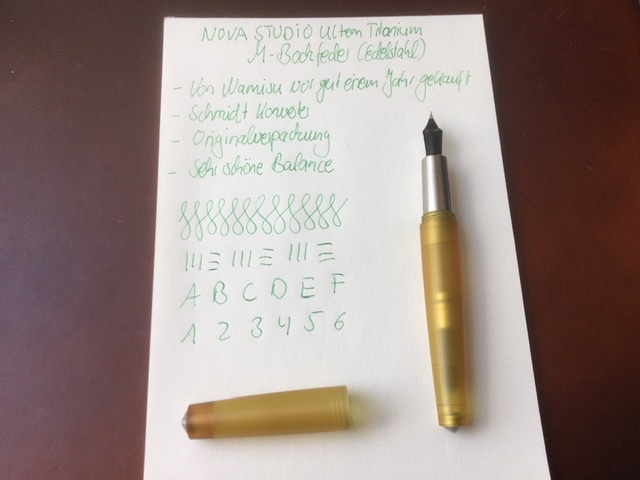 NOVA STUDIO Ultem Titanium
M-Bockfeder (Edelstahl)
- Von Wamisu vor gut einem Jahr gekauft
- Schmidt Konverter
- Originalverpackung
- Sehr schöne Balance
A B C D E F
1 2 3 4 5 6